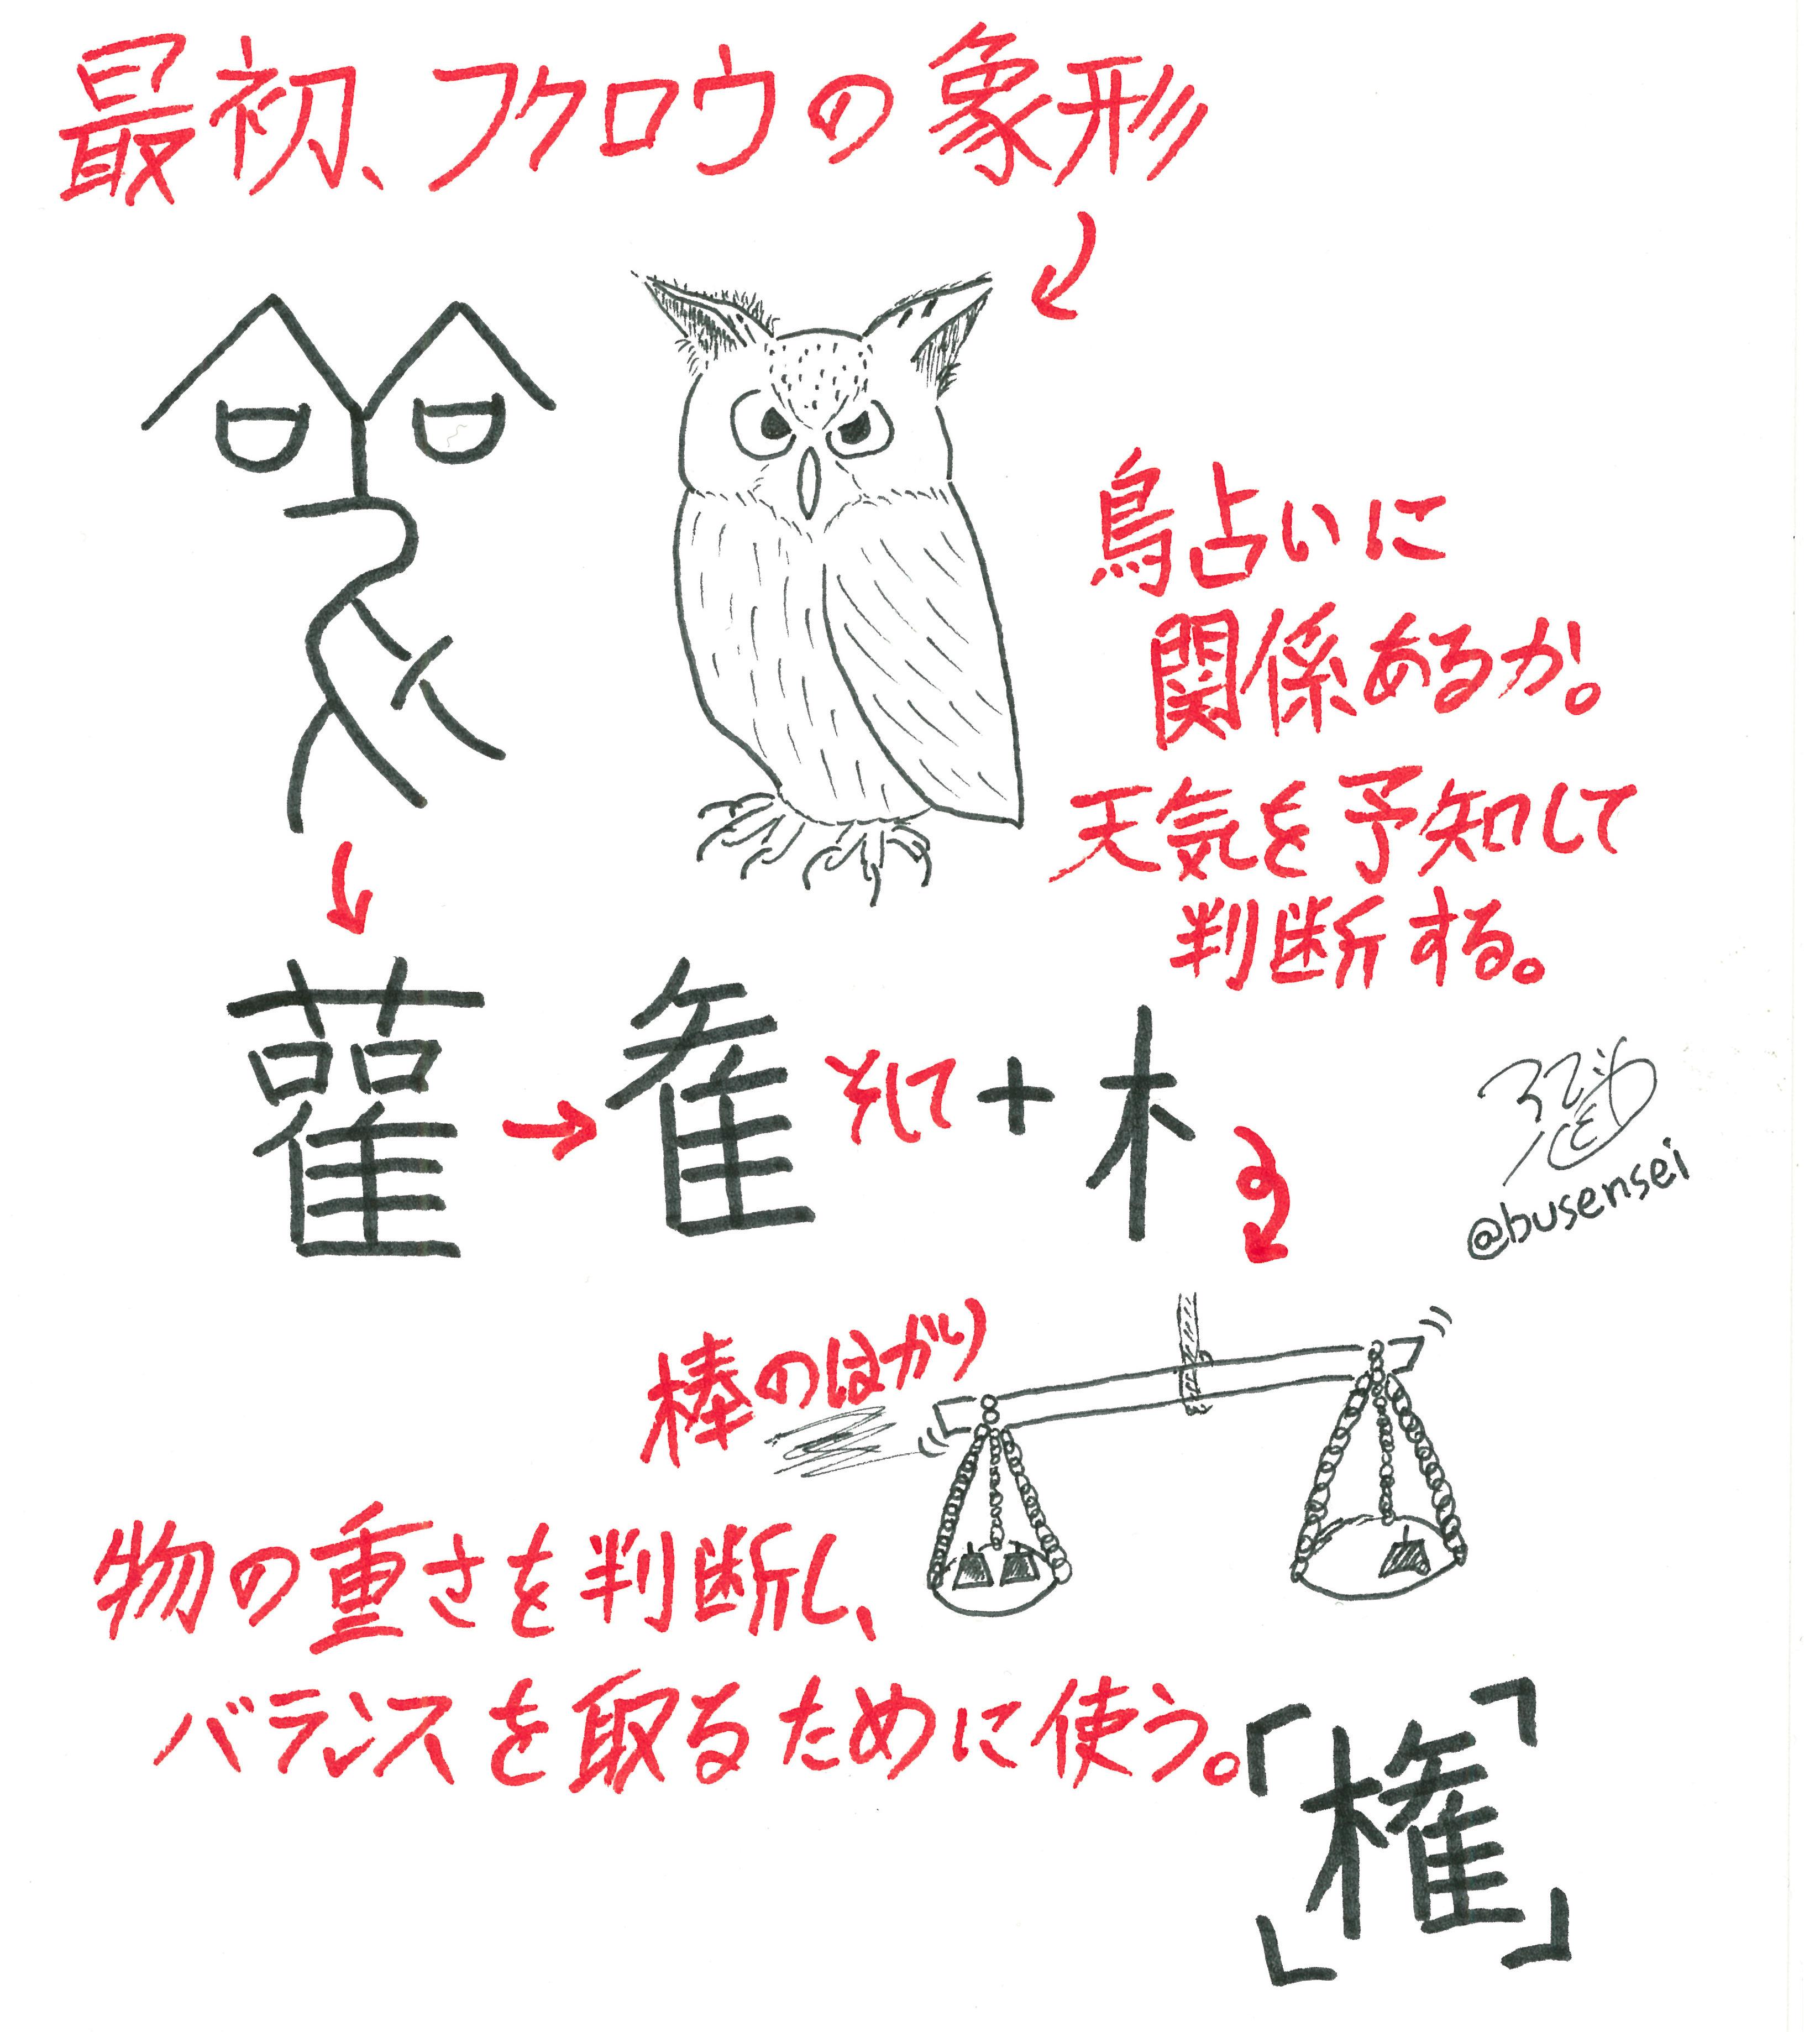 最初、フクロウの象形
鳥占いに
関係あるか。
天気を予知して
判断する。
雚 → 隺 そして + 木
@busensei
棒のはかり
物の重さを判断し、
バランスを取るために使う。
「権」